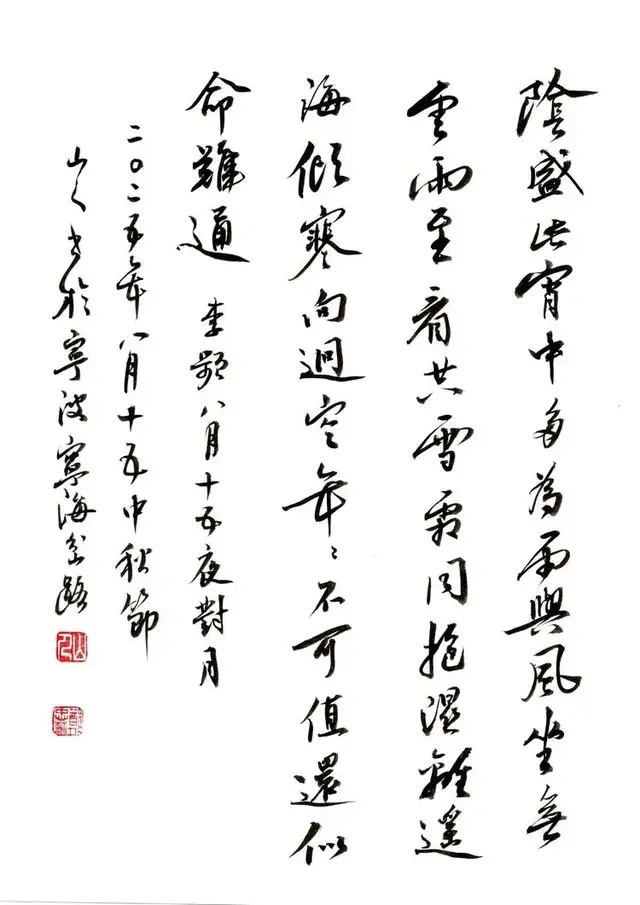 陰盛此宵中多為雨與風坐無
雲雨至看共雪霜同抱濕離遙
海傾寒向迥空年〻不可值還似
命難通 李頻八月十五夜對月
二〇二五年八月十五中秋節
山人書於寧波寧海岔路